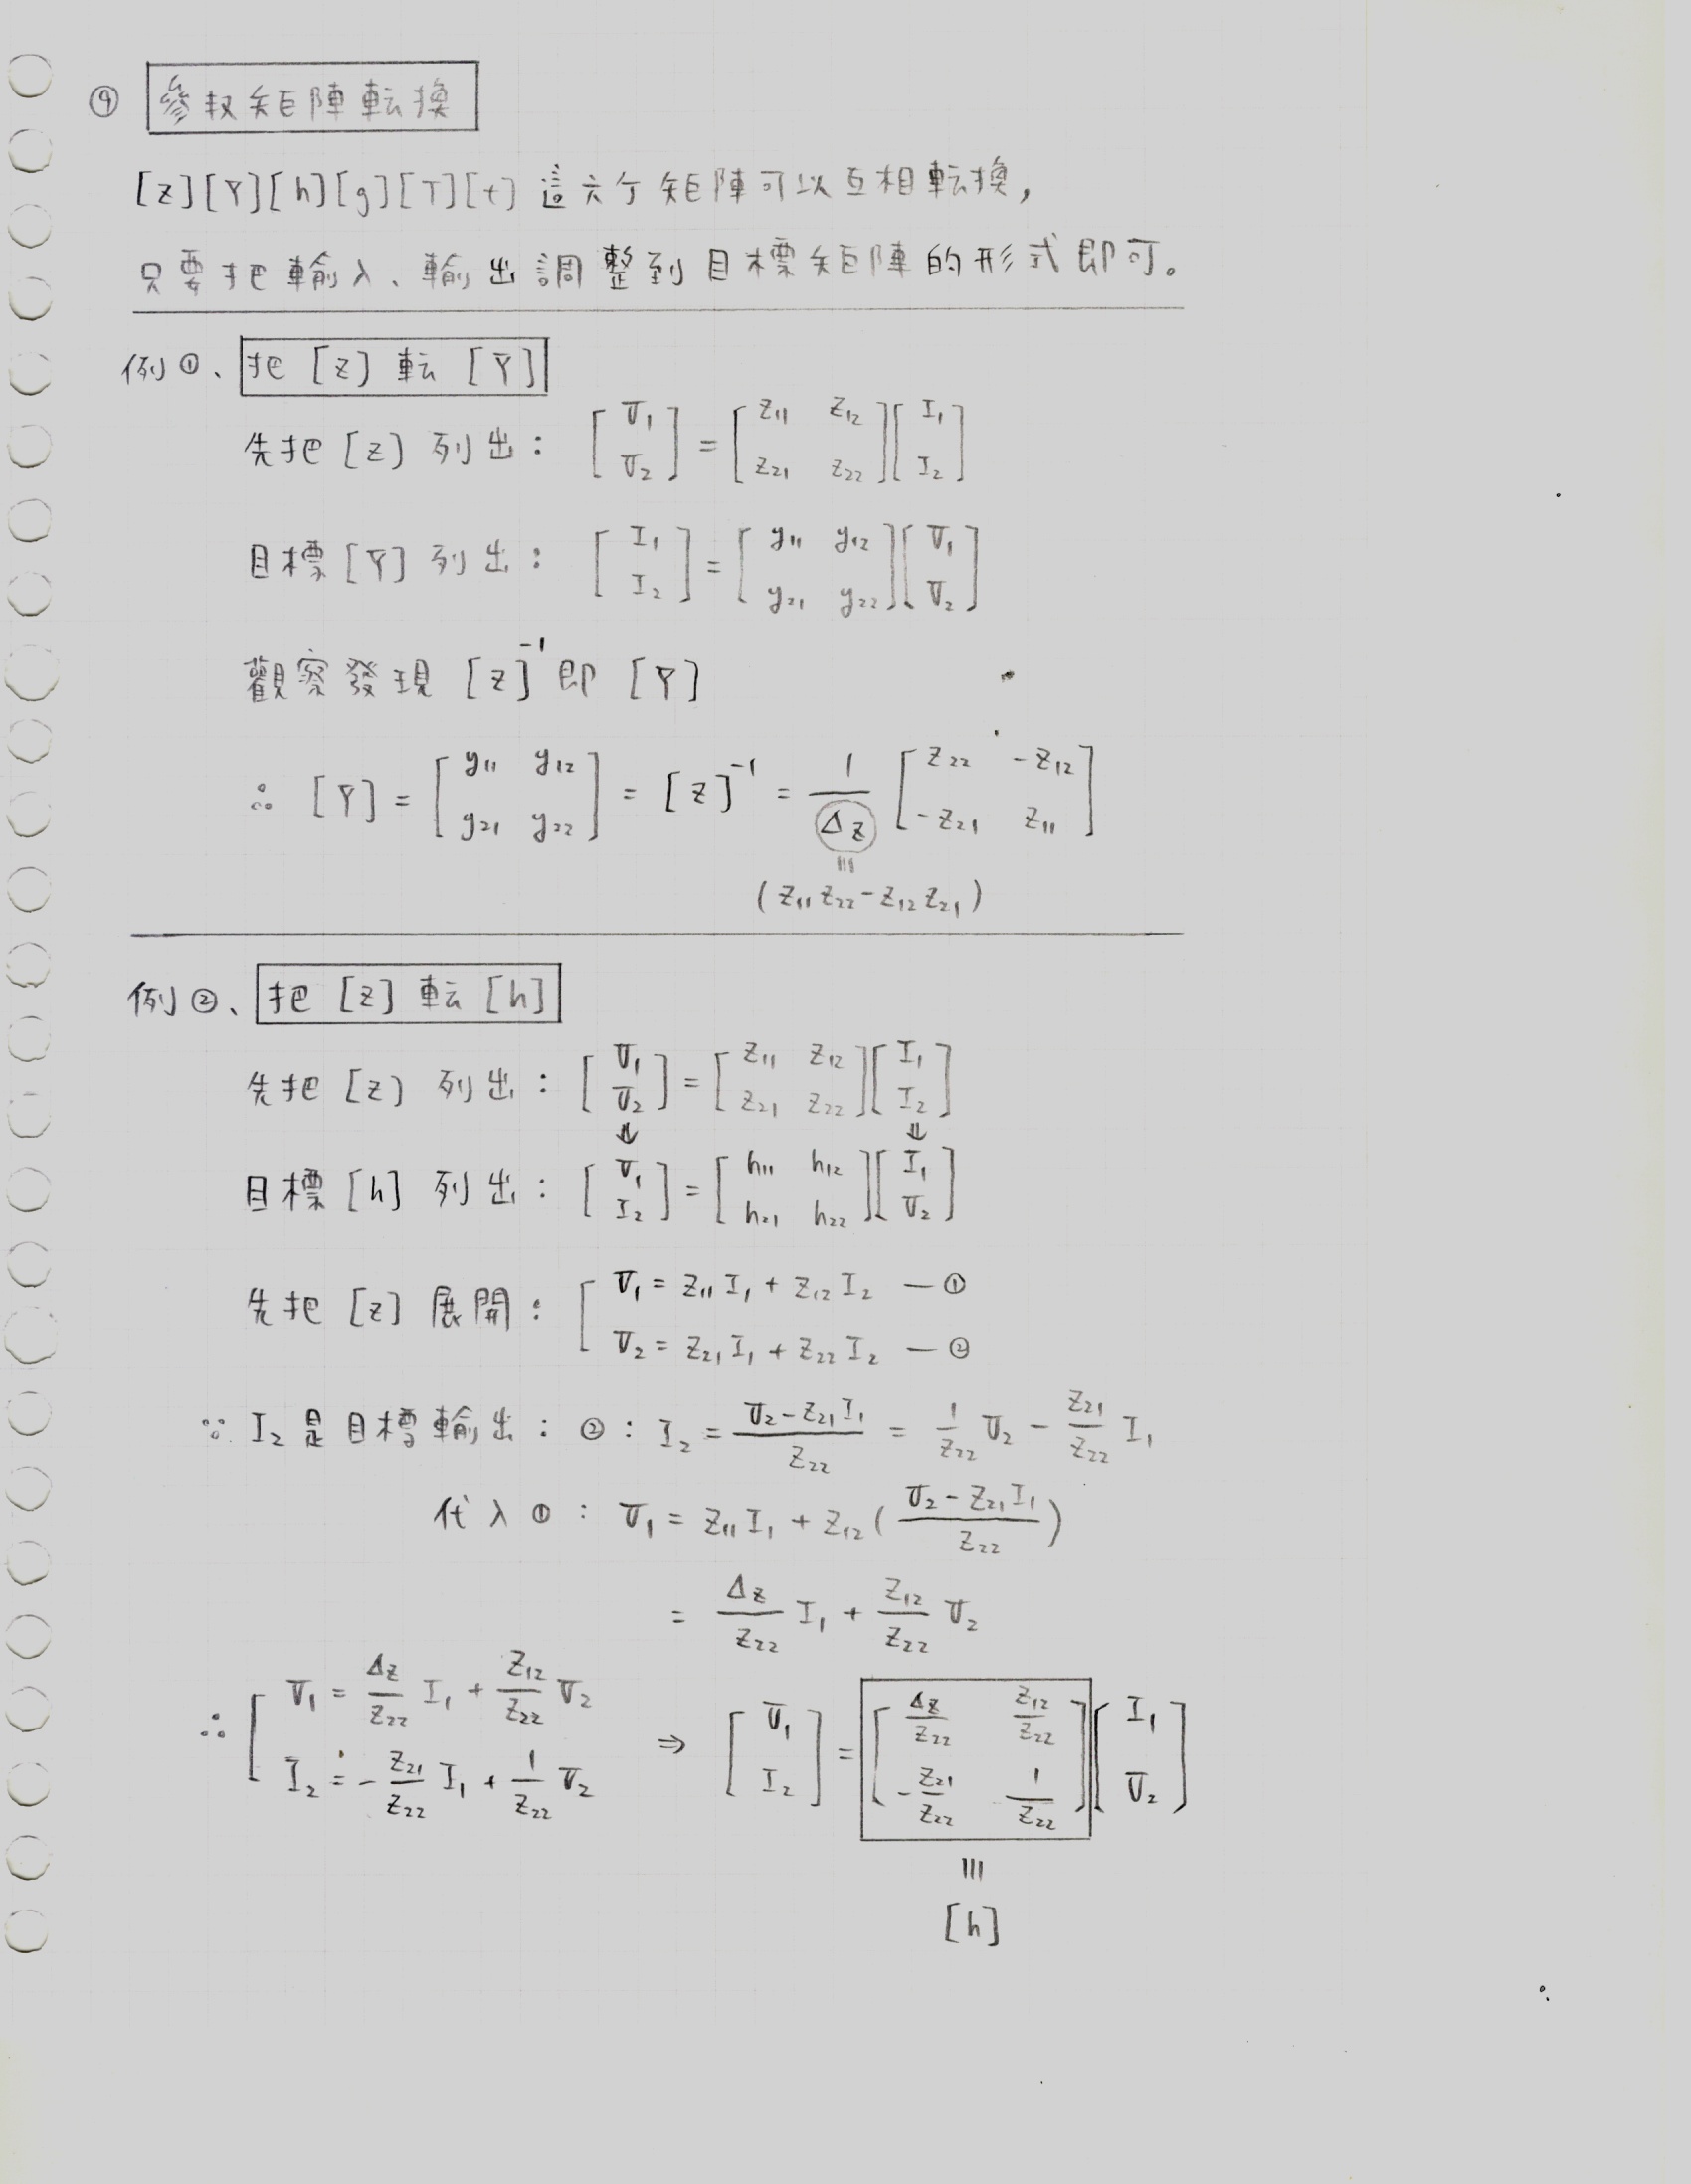 ⑨ 參収矩陣転換
[Z][Y][h][g][T][t] 這六个矩陣可以互相転換,
只要把輸入、輸出調整到目標矩陣的形式即可。
例①、把 [Z] 転 [Y]
先把 [Z] 列出: [V₁ ; V₂] = [Z₁₁ Z₁₂ ; Z₂₁ Z₂₂][I₁ ; I₂]
目標 [Y] 列出: [I₁ ; I₂] = [y₁₁ y₁₂ ; y₂₁ y₂₂][V₁ ; V₂]
觀察發現 [Z]⁻¹ 即 [Y]
∴ [Y] = [y₁₁ y₁₂ ; y₂₁ y₂₂] = [Z]⁻¹ = 1/Δz [Z₂₂ -Z₁₂ ; -Z₂₁ Z₁₁]
≡
(Z₁₁Z₂₂-Z₁₂Z₂₁)
例②、把 [Z] 転 [h]
先把 [Z] 列出: [V₁ ; V₂] = [Z₁₁ Z₁₂ ; Z₂₁ Z₂₂][I₁ ; I₂]
⇓ ⇓
目標 [h] 列出: [V₁ ; I₂] = [h₁₁ h₁₂ ; h₂₁ h₂₂][I₁ ; V₂]
先把 [Z] 展開: [ V₁ = Z₁₁I₁ + Z₁₂I₂ —①
V₂ = Z₂₁I₁ + Z₂₂I₂ —②
∵ I₂是目標輸出: ②: I₂ = (V₂-Z₂₁I₁)/Z₂₂ = 1/Z₂₂ V₂ - Z₂₁/Z₂₂ I₁
代入①: V₁ = Z₁₁I₁ + Z₁₂((V₂-Z₂₁I₁)/Z₂₂)
= Δz/Z₂₂ I₁ + Z₁₂/Z₂₂ V₂
∴ [ V₁ = Δz/Z₂₂ I₁ + Z₁₂/Z₂₂ V₂
I₂ = -Z₂₁/Z₂₂ I₁ + 1/Z₂₂ V₂
⇒ [V₁ ; I₂] = [Δz/Z₂₂ Z₁₂/Z₂₂ ; -Z₂₁/Z₂₂ 1/Z₂₂][I₁ ; V₂]
≡
[h]